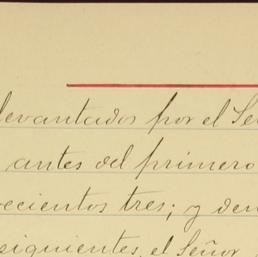 levantados por el Se
antes del primero
ecientos tres; y den
siguientes, el Señor